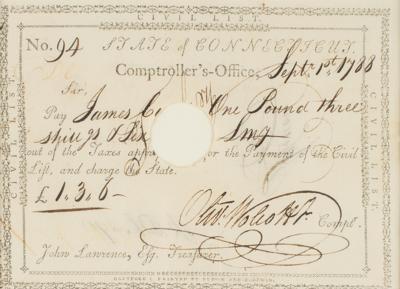 CIVIL LIST.
No. 94 STATE of CONNECTICUT.
Comptroller's-Office, Sept. 1st 1788
Sir,
Pay James One Pound three
shillings & Six
out of the Taxes for the Payment of the Civil
List, and charge the State.
£ 1.3.6
Olivr. Wolcott Jr. Compt.
John Lawrence, Esq. Treasurer.
CIVIL LIST.
CIVIL LIST.